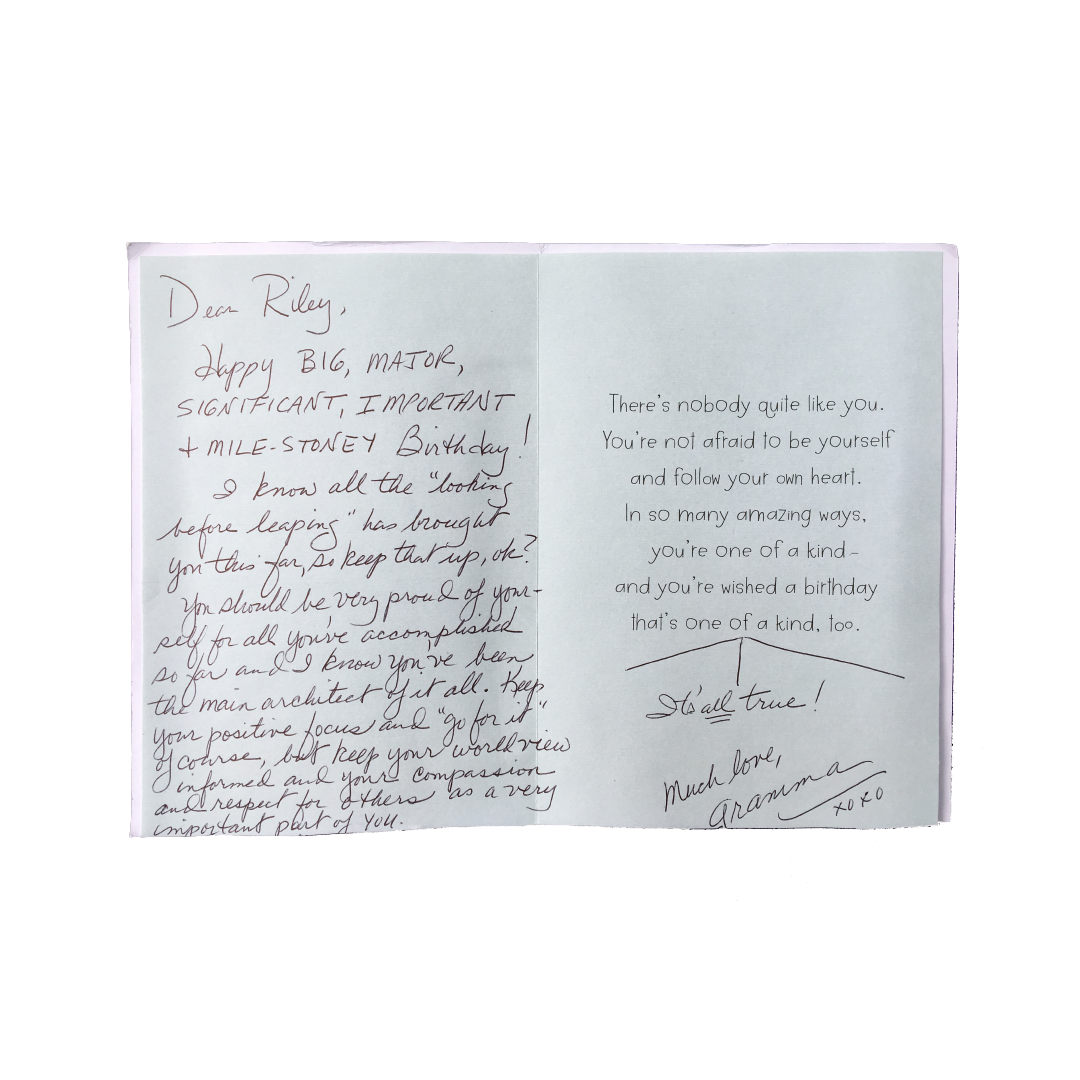 Dear Riley,
Happy BIG, MAJOR,
SIGNIFICANT, IMPORTANT
+ MILE-STONEY Birthday!
I know all the "looking
before leaping" has brought
you this far, so keep that up, ok?
You should be very proud of your-
self for all you've accomplished
so far and I know you've been
the main architect of it all. Keep
your positive focus and "go for it"
of course, but keep your world view
informed and your compassion
and respect for others as a very
important part of you.
There's nobody quite like you.
You're not afraid to be yourself
and follow your own heart.
In so many amazing ways,
you're one of a kind –
and you're wished a birthday
that's one of a kind, too.
It's all true!
Much love,
Gramma
xoxo